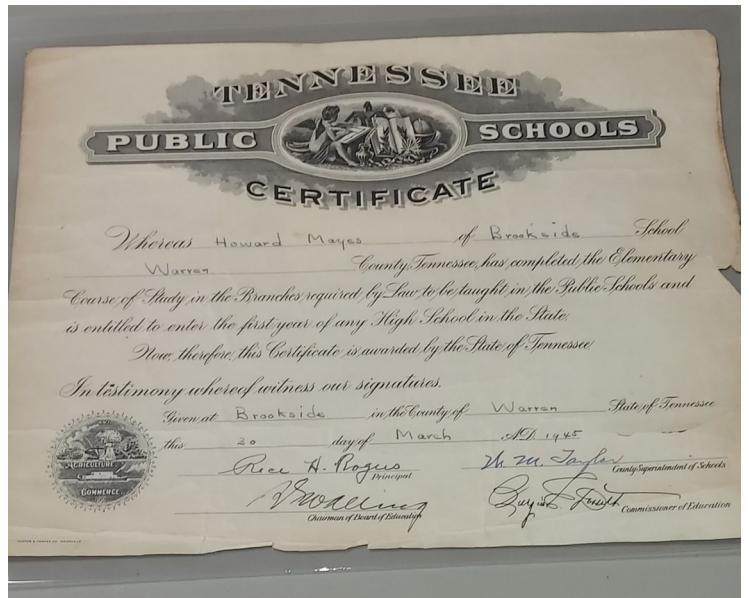 TENNESSEE
PUBLIC SCHOOLS
CERTIFICATE
Whereas Howard Mayes of Brookside School
Warren County, Tennessee, has completed the Elementary
Course of Study in the Branches required by Law to be taught in the Public Schools and
is entitled to enter the first year of any High School in the State.
Now, therefore, this Certificate is awarded by the State of Tennessee
In testimony whereof witness our signatures.
Given at Brookside in the County of Warren State of Tennessee
this 30 day of March A.D. 1945
AGRICULTURE
COMMERCE
Rice H. M. M. Taylor
Principal County Superintendent of Schools
Chairman of Board of Education Commissioner of Education